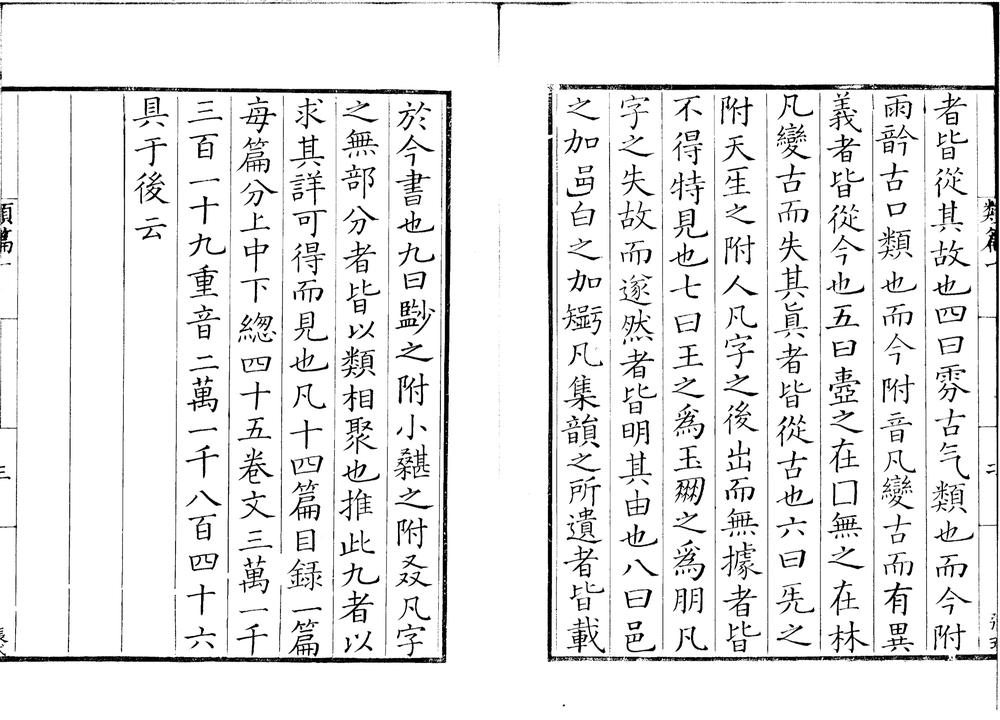 者皆從其故也四曰雰古气類也而今附
雨䪩古口類也而今附音凡變古而有異
義者皆從今也五曰壼之在囗無之在林
凡變古而失其眞者皆從古也六曰兂之
附天𤯔之附人凡字之後出而無據者皆
不得特見也七曰王之爲玉之爲朋凡
字之失故而遂然者皆明其由也八曰邑
之加白之加凡集韻之所遺者皆載
類篇一
二
於今書也九曰之附小之附叒凡字
之無部分者皆以類相聚也推此九者以
求其詳可得而見也凡十四篇目録一篇
每篇分上中下緫四十五卷文三萬一千
三百一十九重音二萬一千八百四十六
具于後云
類篇一
三